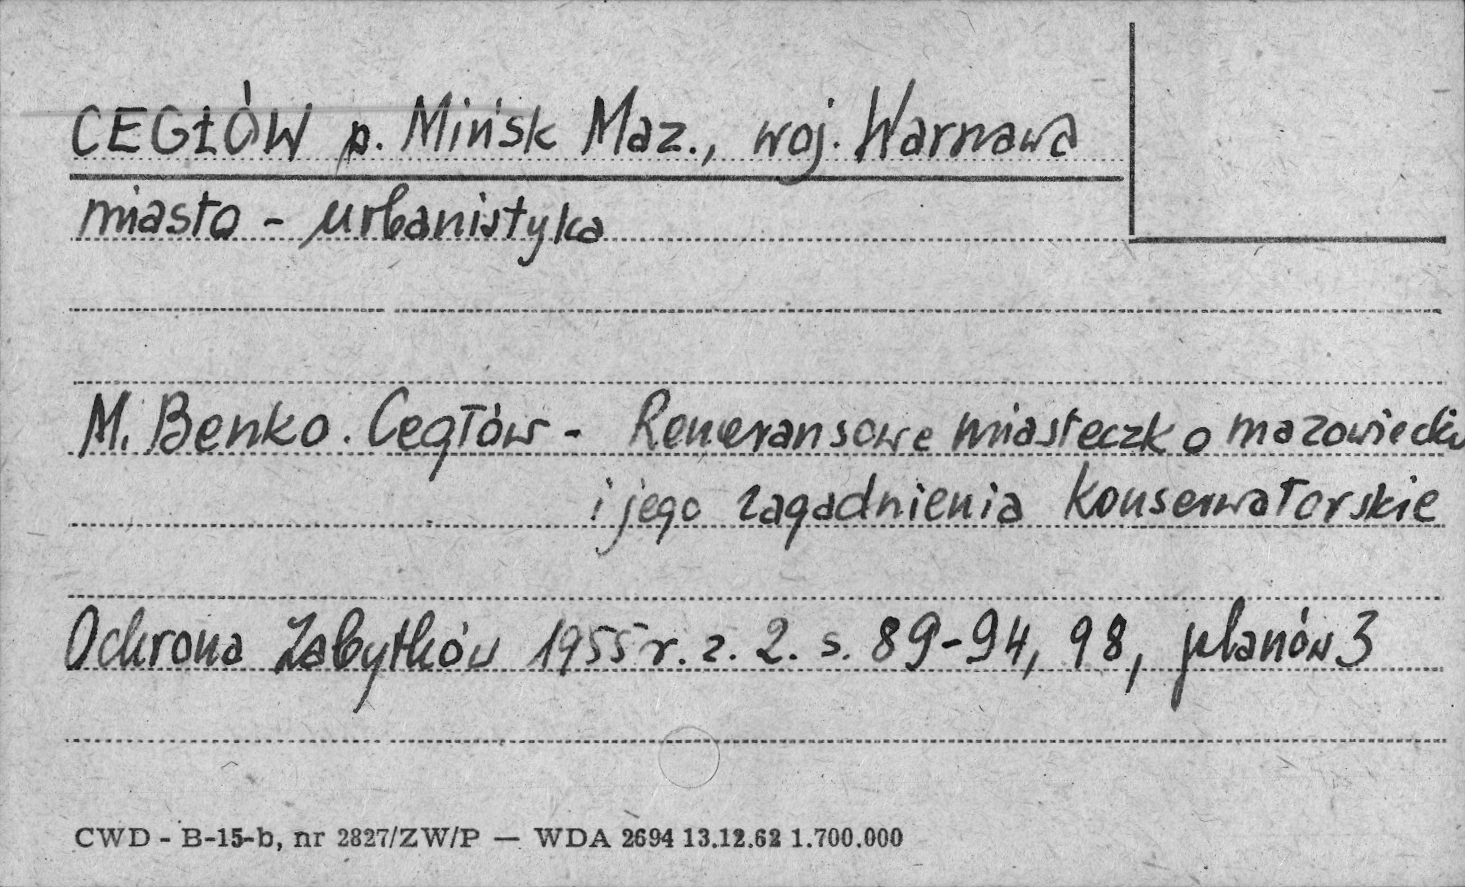 CEGŁÓW p. Mińsk Maz., woj. Warszawa
miasto - urbanistyka
M. Benko. Cegłów - Renesansowe miasteczko mazowieckie
i jego zagadnienia konserwatorskie
Ochrona Zabytków 1955 r. z. 2. s. 89-94, 98, planów 3
CWD - B-15-b, nr 2827/ZW/P — WDA 2694 13.12.62 1.700.000